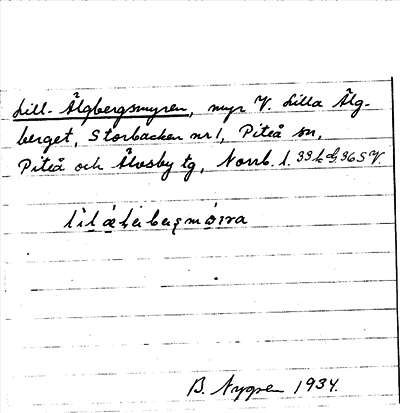 Lill-Älgbergsmyren, myr V. Lilla Älg-
berget, Storbacken nr 1, Piteå sn,
Piteå och Älvsby tg, Norrb. l. 33 h & 36 S V.
B. Nygren 1934.